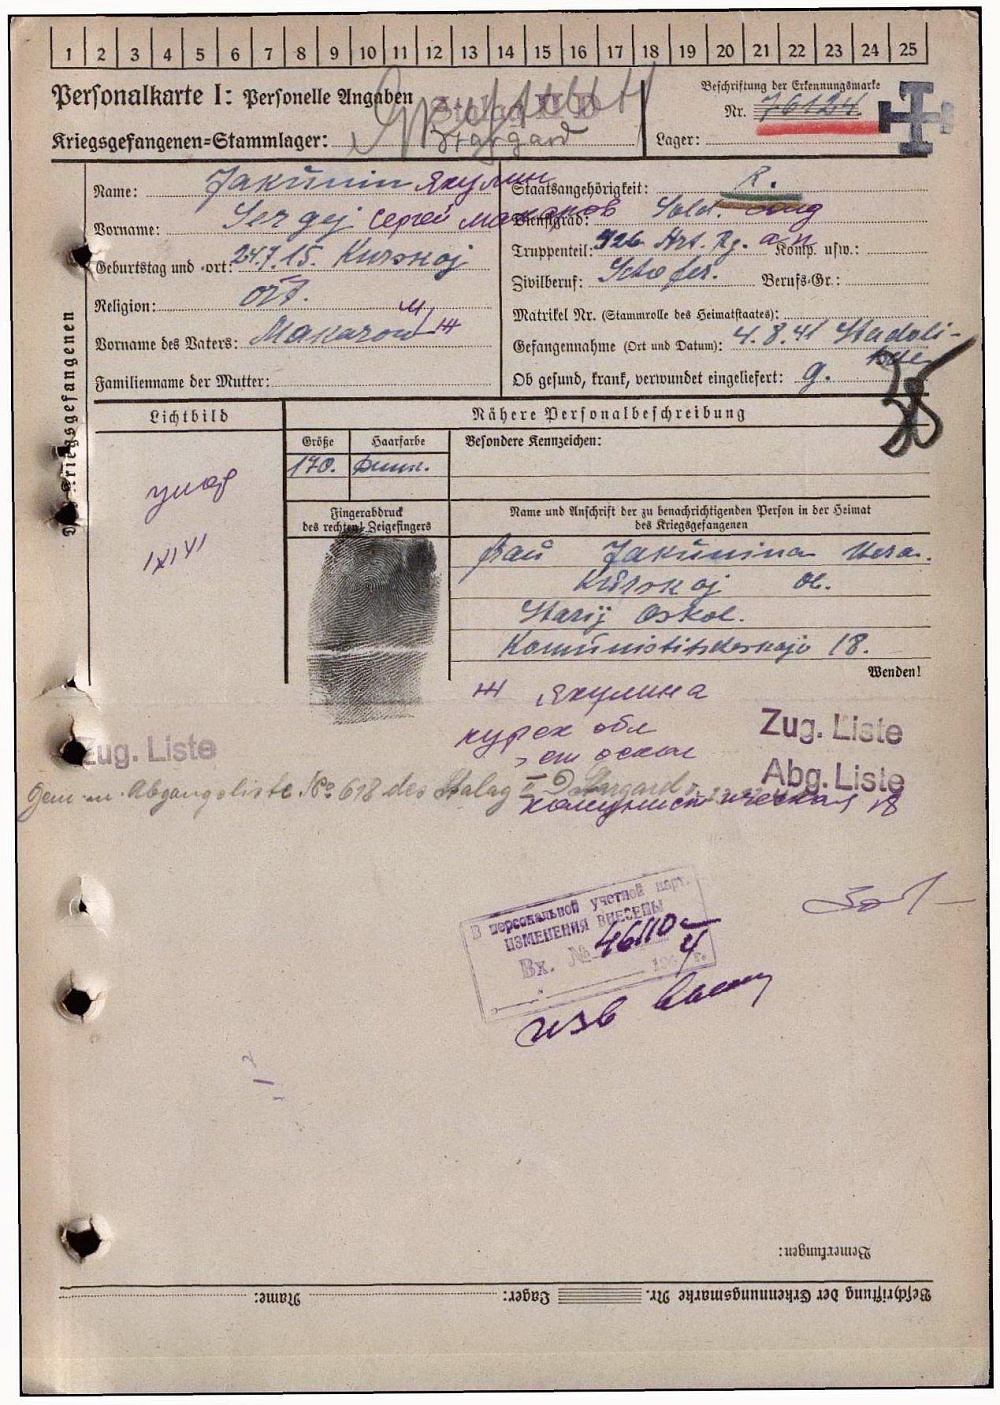 1 2 3 4 5 6 7 8 9 10 11 12 13 14 15 16 17 18 19 20 21 22 23 24 25
Personalkarte I: Personelle Angaben
Beschriftung der Erkennungsmarke
Nr. 76124
Kriegsgefangenen-Stammlager: Stalag II D
Stargard
Lager:
Des Kriegsgefangenen
Name: Jakunin Якунин
Staatsangehörigkeit: R.
Vorname: Sergej Сергей
Dienstgrad: Sold.
Geburtstag und -ort: 24.7.15. Kurskoj
Truppenteil: 926 Art. Rg. Komp. usw.:
Religion: ort.
Zivilberuf: Schofer. Berufs-Gr.:
Matrikel Nr. (Stammrolle des Heimatstaates):
Vorname des Vaters: Makarow
Gefangennahme (Ort und Datum): 4.8.41
Familienname der Mutter:
Ob gesund, krank, verwundet eingeliefert: g.
Lichtbild
Nähere Personalbeschreibung
Größe
Haarfarbe
Besondere Kennzeichen:
170.
умер
Fingerabdruck
des rechten Zeigefingers
Name und Anschrift der zu benachrichtigenden Person in der Heimat
des Kriegsgefangenen
Frau Jakunina Wera.
Kurskoj Ob.
Starij Oskol.
18.
Wenden!
ж Якунина
курск обл
ст оскол
коммунистическая 18
Zug. Liste
Zug. Liste
Abg. Liste
Gem. Abgangsliste No 618 des Stalag II D Stargard
В персональной учетной карт.
ИЗМЕНЕНИЯ ВНЕСЕНЫ
Вх. № 46110
194 г.
Bemerkungen:
Beschriftung der Erkennungsmarke Nr. Lager: Name: